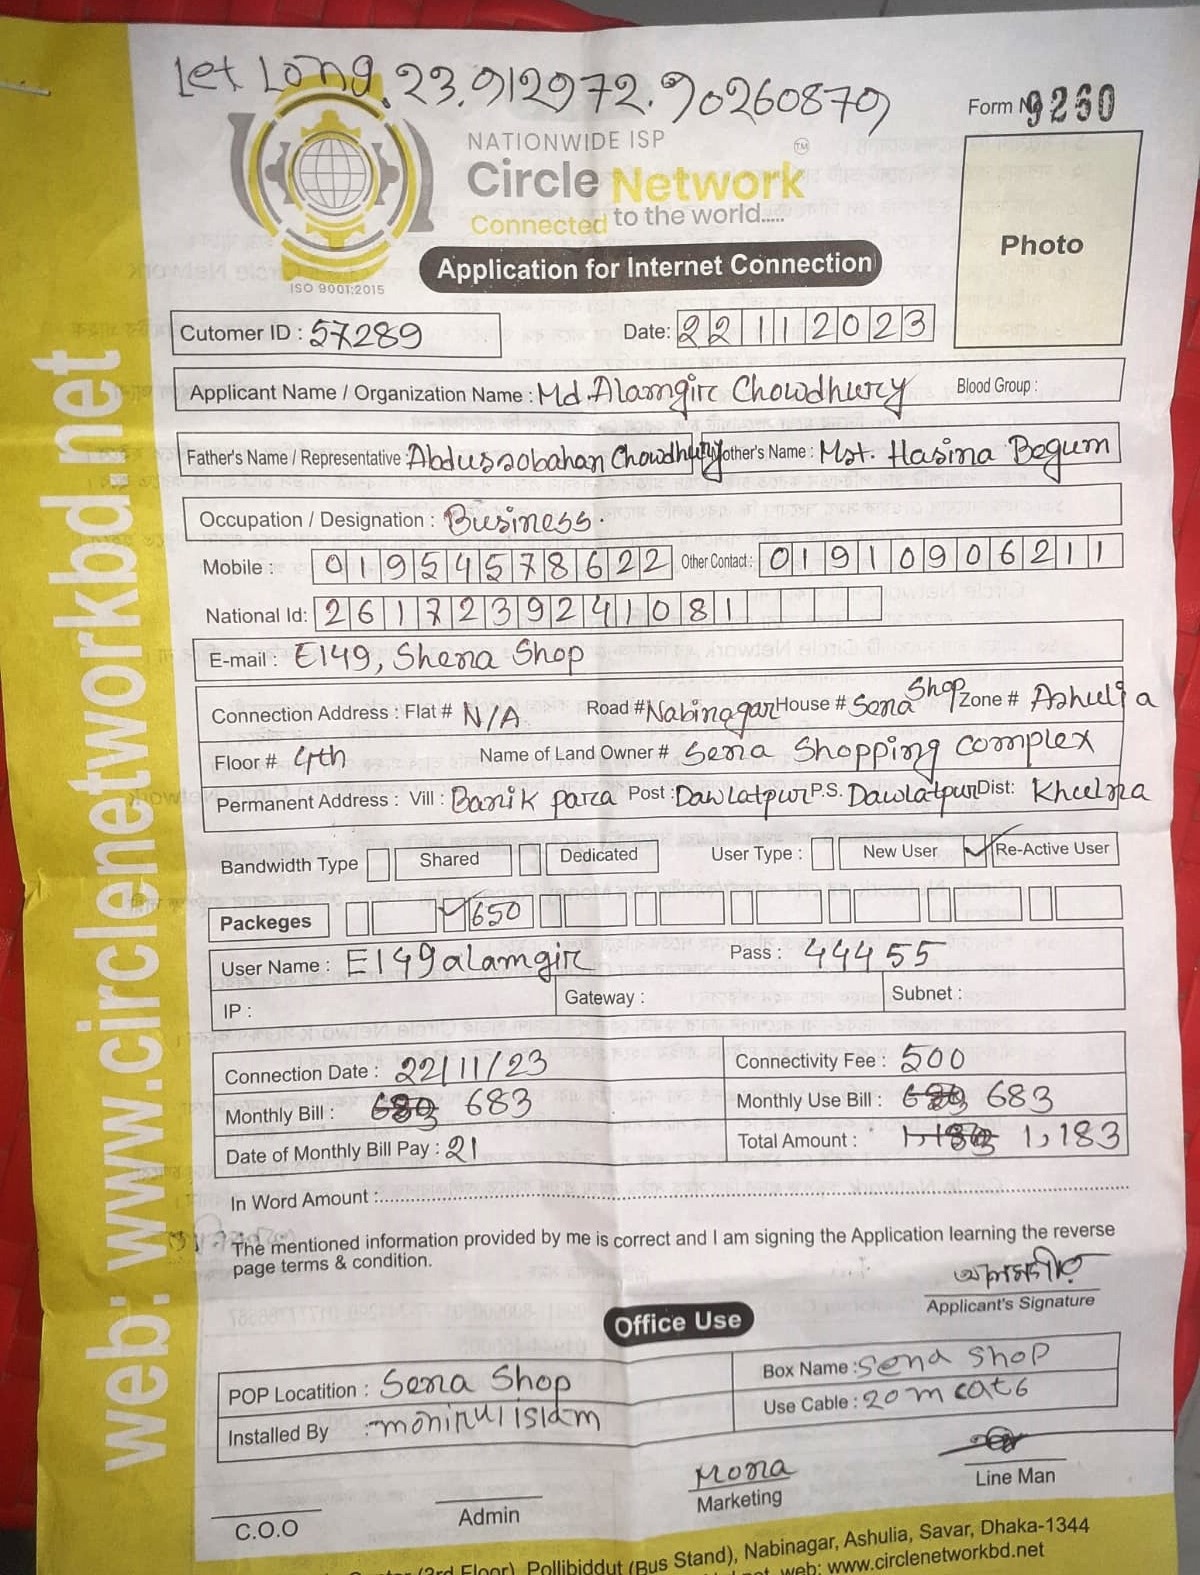 Let Long. 23.912972.90260879
Form No 9260
NATIONWIDE ISP
Circle Network TM
Connected to the world.....
ISO 9001:2015
Application for Internet Connection
Photo
Cutomer ID : 57289
Date: 22112023
Applicant Name / Organization Name : Md. Alamgir Chowdhury Blood Group :
Father's Name / Representative Abdussobahan Chowdhury other's Name : Mst. Hasina Begum
Occupation / Designation : Business.
Mobile : 01954578622 Other Contact : 01910906211
National Id: 2617239241081
E-mail : E149, Shena Shop
Connection Address : Flat # N/A Road # Nabinagar House # Sena Shop Zone # Ashulia
Floor # 4th Name of Land Owner # Sena Shopping Complex
Permanent Address : Vill : Banik para Post : Dawlatpur P.S. Dawlatpur Dist: Khulna
Bandwidth Type Shared Dedicated User Type : New User ✓ Re-Active User
Packeges ✓ 650
User Name : E149alamgir Pass : 44455
IP : Gateway : Subnet :
Connection Date : 22/11/23 Connectivity Fee : 500
Monthly Bill : 683 Monthly Use Bill : 683
Date of Monthly Bill Pay : 21 Total Amount : 1,183
In Word Amount :
The mentioned information provided by me is correct and I am signing the Application learning the reverse
page terms & condition.
আলমগীর
Applicant's Signature
Office Use
POP Locatition : Sena Shop Box Name : Sena Shop
Installed By :- monirul islam Use Cable : 20m cat6
Mona
C.O.O Admin Marketing Line Man
(3rd Floor), Pollibiddut (Bus Stand), Nabinagar, Ashulia, Savar, Dhaka-1344
web: www.circlenetworkbd.net
web: www.circlenetworkbd.net